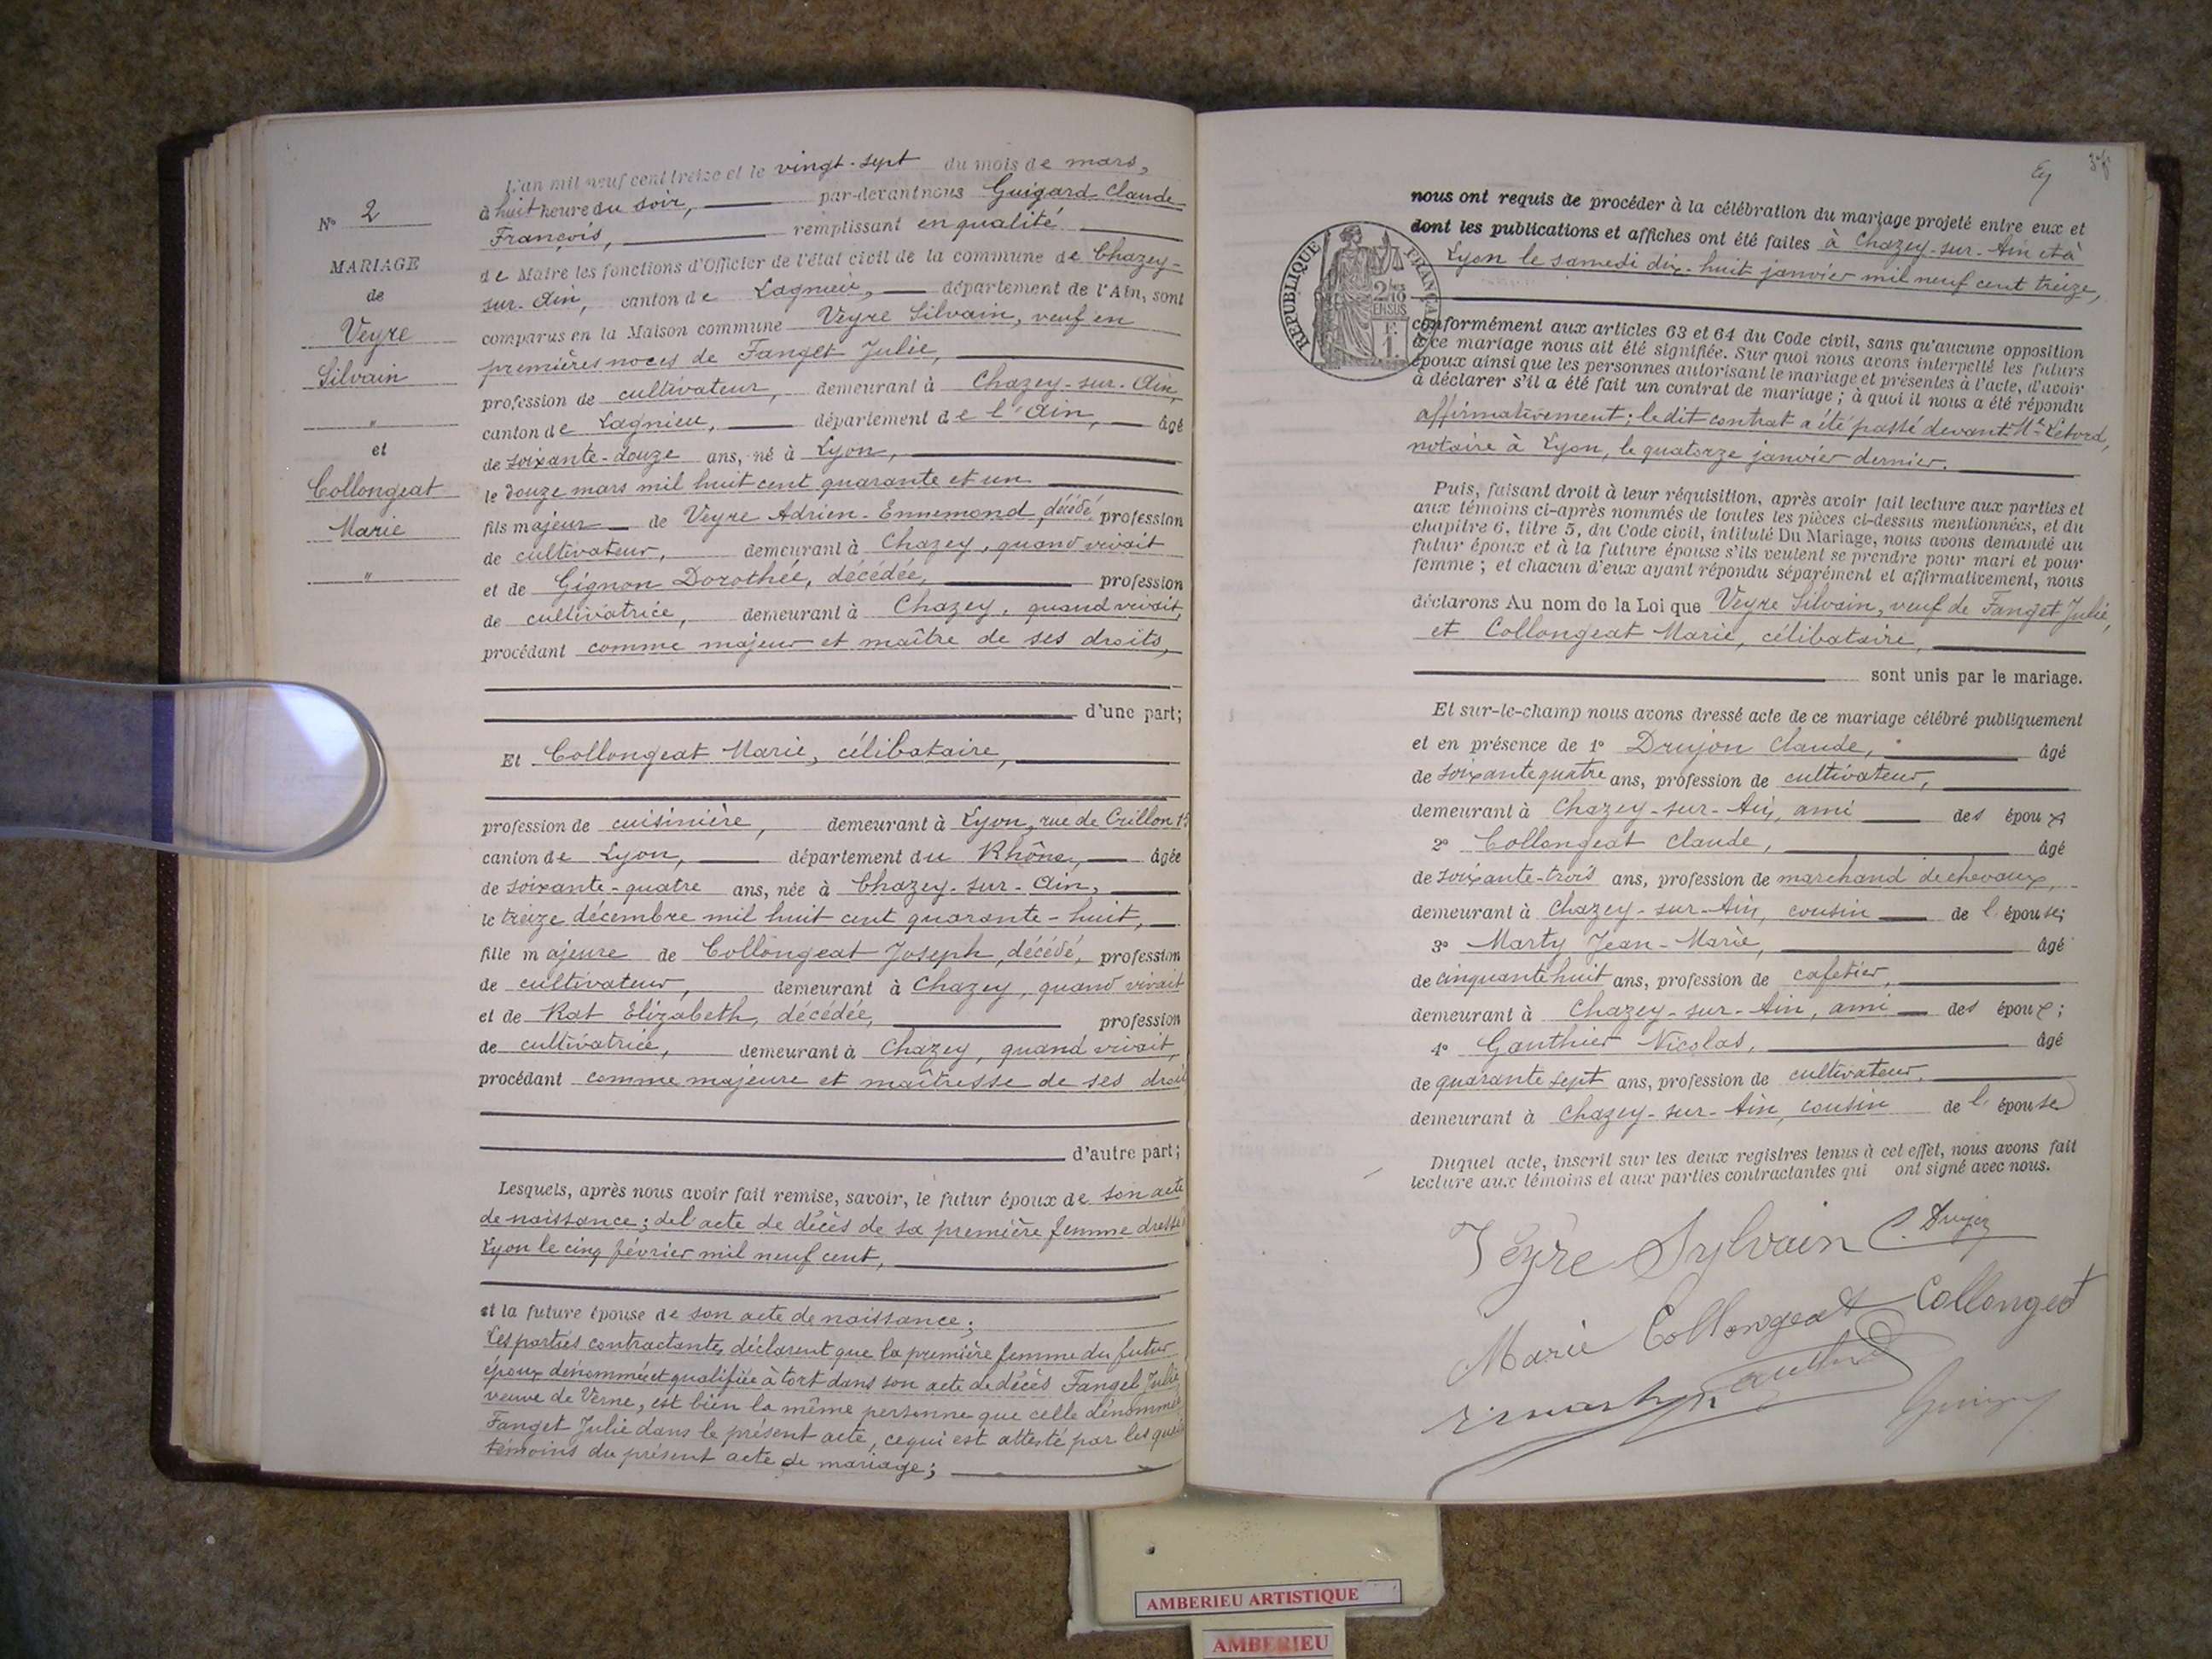 N° 2
MARIAGE
de
Veyre
Silvain
"
et
Collongeat
Marie
"
L'an mil neuf cent treize et le vingt-sept du mois de mars,
à huit heure du soir, par-devant nous Guigard Claude
François, remplissant en qualité
de Maire les fonctions d'Officier de l'état civil de la commune de Chazey-
sur-Ain, canton de Lagnieu, département de l'Ain, sont
comparus en la Maison commune Veyre Silvain, veuf en
premières noces de Fanget Julie,
profession de cultivateur, demeurant à Chazey-sur-Ain,
canton de Lagnieu, département de l'Ain, âgé
de soixante-douze ans, né à Lyon,
le douze mars mil huit cent quarante et un
fils majeur de Veyre Adrien-Ennemond, décédé, profession
de cultivateur, demeurant à Chazey, quand vivait
et de Gignon Dorothée, décédée, profession
de cultivatrice, demeurant à Chazey, quand vivait,
procédant comme majeur et maître de ses droits,
d'une part;
Et Collongeat Marie, célibataire,
profession de cuisinière, demeurant à Lyon, rue de Crillon 15
canton de Lyon, département du Rhône, âgée
de soixante-quatre ans, née à Chazey-sur-Ain,
le treize décembre mil huit cent quarante-huit,
fille majeure de Collongeat Joseph, décédé, profession
de cultivateur, demeurant à Chazey, quand vivait
et de Rat Elizabeth, décédée, profession
de cultivatrice, demeurant à Chazey, quand vivait,
procédant comme majeure et maîtresse de ses droits
d'autre part;
Lesquels, après nous avoir fait remise, savoir, le futur époux de son acte
de naissance; de l'acte de décès de sa première femme dressé à
Lyon le cinq février mil neuf cent,
et la future épouse de son acte de naissance;
Les parties contractantes déclarent que la première femme du futur
époux dénommée et qualifiée à tort dans son acte de décès Fangel Julie
veuve de Verne, est bien la même personne que celle dénommée
Fanget Julie dans le présent acte, ce qui est attesté par les quatre
témoins du présent acte de mariage;
nous ont requis de procéder à la célébration du mariage projeté entre eux et
dont les publications et affiches ont été faites à Chazey-sur-Ain et à
Lyon le samedi dix-huit janvier mil neuf cent treize,
REPUBLIQUE FRANÇAISE
conformément aux articles 63 et 64 du Code civil, sans qu'aucune opposition
à ce mariage nous ait été signifiée. Sur quoi nous avons interpellé les futurs
époux ainsi que les personnes autorisant le mariage et présentes à l'acte, d'avoir
à déclarer s'il a été fait un contrat de mariage; à quoi il nous a été répondu
affirmativement; le dit contrat a été passé devant Me Létord,
notaire à Lyon, le quatorze janvier dernier.
Puis, faisant droit à leur réquisition, après avoir fait lecture aux parties et
aux témoins ci-après nommés de toutes les pièces ci-dessus mentionnées, et du
chapitre 6, titre 5, du Code civil, intitulé Du Mariage, nous avons demandé au
futur époux et à la future épouse s'ils veulent se prendre pour mari et pour
femme; et chacun d'eux ayant répondu séparément et affirmativement, nous
déclarons Au nom de la Loi que Veyre Silvain, veuf de Fanget Julie,
et Collongeat Marie, célibataire,
sont unis par le mariage.
Et sur-le-champ nous avons dressé acte de ce mariage célébré publiquement
et en présence de 1° Drujon Claude, âgé
de soixante quatre ans, profession de cultivateur,
demeurant à Chazey-sur-Ain, ami des époux
2° Collongeat Claude, âgé
de soixante-trois ans, profession de marchand de chevaux,
demeurant à Chazey-sur-Ain, cousin de l'épouse;
3° Marty Jean-Marie, âgé
de cinquante huit ans, profession de cafetier,
demeurant à Chazey-sur-Ain, ami des époux;
4° Gauthier Nicolas, âgé
de quarante sept ans, profession de cultivateur,
demeurant à Chazey-sur-Ain, cousin de l'épouse
Duquel acte, inscrit sur les deux registres tenus à cet effet, nous avons fait
lecture aux témoins et aux parties contractantes qui ont signé avec nous.
Veyre Sylvain C. Drujon
Marie Collongeat Collongeat
AMBERIEU ARTISTIQUE
AMBERIEU